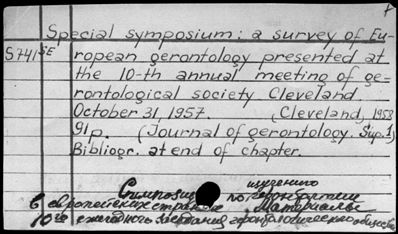 Special symposium: a survey of Eu-
S741 SE ropean gerontology presented at
the 10-th annual meeting of ge-
rontological society Cleveland.
October 31, 1957. (Cleveland, 1958
91p. (Journal of gerontology. Sup.1)
Bibliogr. at end of chapter.
Симпозиум по изучению геронтологии
в европейских странах. Материалы
10го ежегодного заседания геронтологического общества